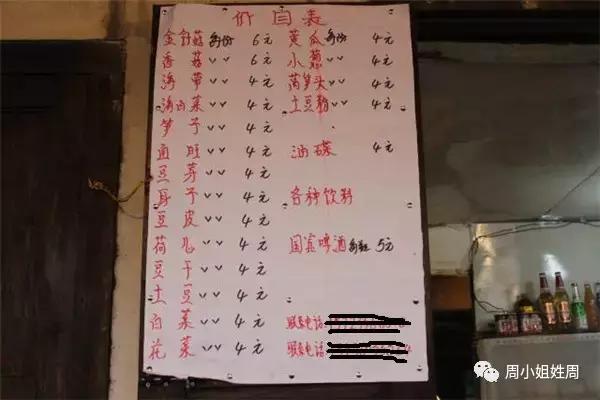 价目表
金针菇 每份 6元 黄瓜 每份 4元
香菇 〃 6元 小 〃 4元
海带 〃 4元 莴笋头 〃 4元
海白菜 〃 4元 土豆粉 〃 4元
笋子 〃 4元
血旺 〃 4元 油碟 4元
豆芽 〃 4元
子 〃 4元 各种饮料
豆皮 〃 4元
荷 〃 4元 国宾啤酒 每瓶 5元
豆干 〃 4元
土豆 〃 4元
白菜 〃 4元 联系电话
花菜 〃 4元 联系电话
周小姐姓周